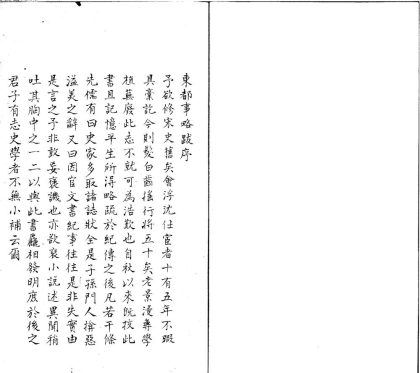 東都事略跋序
予欲修宋史舊矣會浮沈仕宦者十有五年不暇
具稾訖今則髮白齒搖行將五十矣老景漫尋學
植蕪廢此志不就可為浩歎也自秋以來既挍此
書且記憶半生所得略疏於紀傳之後凡若干條
先儒有曰史家多取諸誌狀全是子孫門人掩惡
溢美之辭又曰因官文書紀事往往是非失實由
是言之予非敢妄褒譏也亦欲裒小説述異聞稍
吐其胸中之一二以與此書麤相發明庶於後之
君子有志史學者不無小補云爾